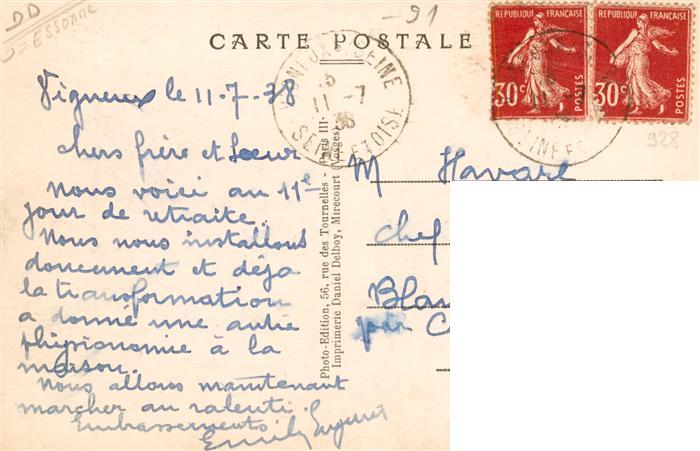 DD
= ESSONNE
-91
CARTE POSTALE
REPUBLIQUE FRANÇAISE
30c
POSTES
REPUBLIQUE FRANÇAISE
30c
POSTES
928
SEINE
11 - 7
38
SEINE ET OISE
Vigneux le 11-7-38
chers frère et Soeur
Nous voici au 11e
jour de retraite.
Nous nous installons
doucement et déja
la transformation
a donné une autre
phisionomie à la
maison.
Nous allons maintenant
marcher au ralenti.
Embrassements
Photo-Edition, 56, rue des Tournelles - Paris III
Imprimerie Daniel Delboy, Mirecourt (Vosges)
M Havard
chef
Blan
par C